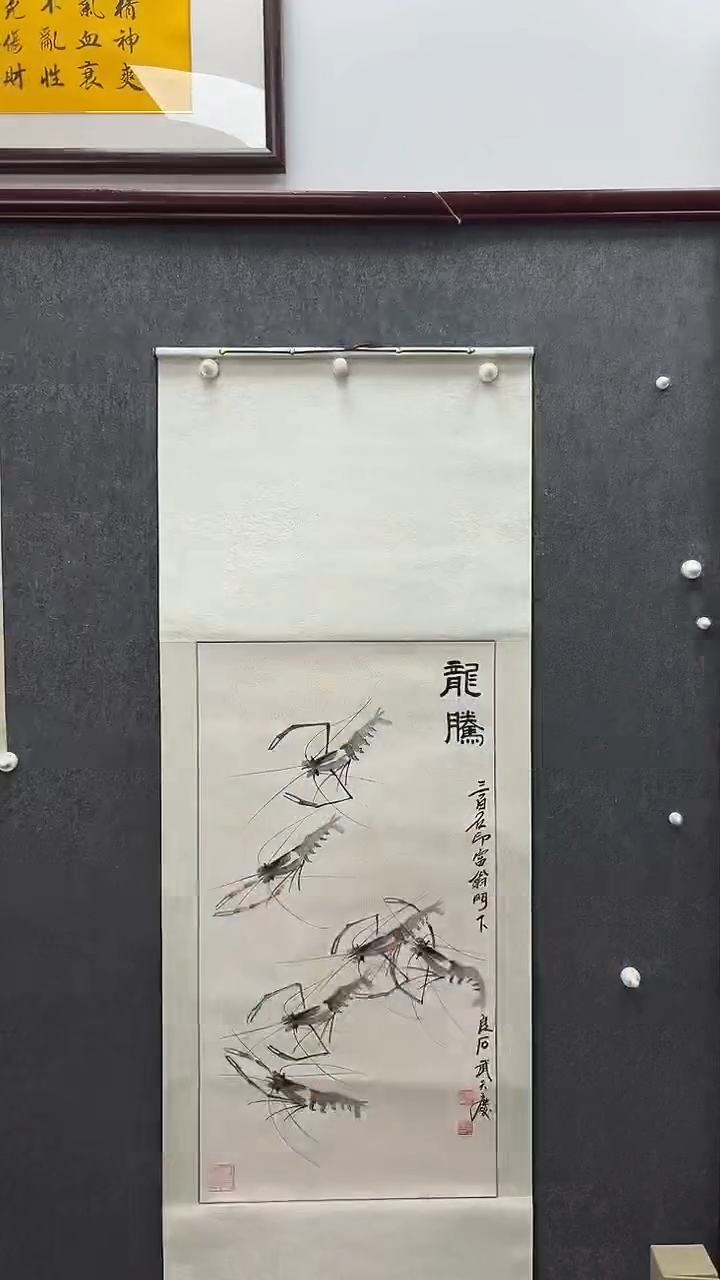 精神爽
氣血衰
不亂性
傷財
龍騰
三百石印富翁門下
良石武天慶